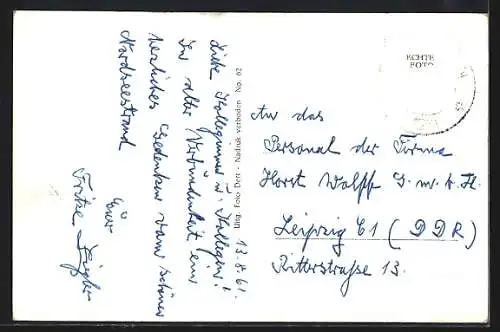 13.8.61.
Liebe Kolleginnen u. Kollegen!
In alter Verbundenheit ein
herzliches Gedenken vom schönen
Nordseestrand
Euer
Fritz
Orig. Foto Dett - Nachdr. verboten No. 62
ECHTE
FOTO
An das
Personal der Firma
Horst Wolff G.m.b.H.
Leipzig C1 (DDR)
Ritterstraße 13.